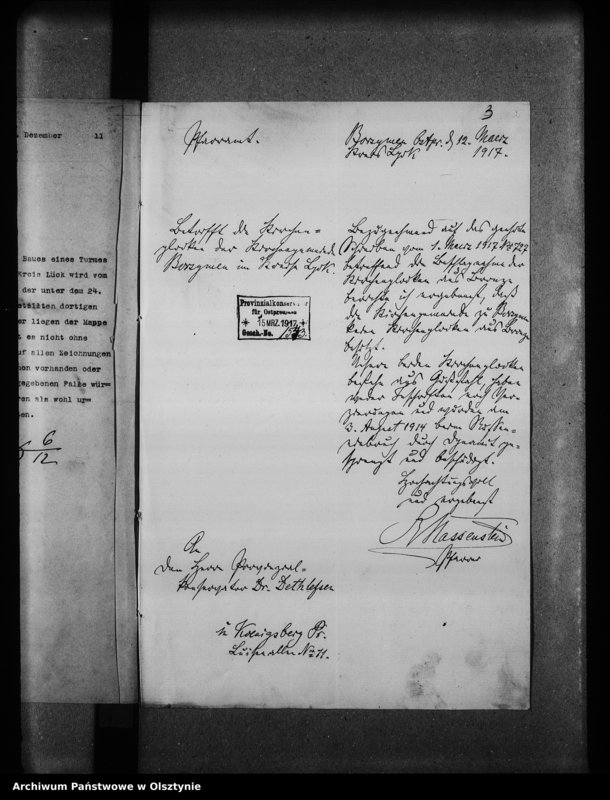 3
Dezember 11
Baues eines Turmes
Kreis Lück wird vom
der unter dem 24.
dortigen
er liegen der Mappe
t es nicht ohne
uf allen Zeichnungen
on vorhanden oder
gegebenen Falke wür=
en als wohl ur=
en.
6
12
Pfarramt.
Borzymen Ostpr. d. 12. Maerz
Kreis Lyck 1917.
Betrifft die Kirchen=
glocken der Kirchengemeinde
Borzymen im Kreise Lyck.
Provinzialkonservator
für Ostpreussen
15 MRZ. 1917
Gesch.-No.
Bezugnehmend auf das geehrte
Schreiben vom 1. Maerz 1917 No 727
betreffend die Beschlagnahme der
Kirchenglocken aus Bronze
berichte ich ergebenst, daß
die Kirchengemeinde zu Borzymen
keine Kirchenglocken aus Bronze
besitzt.
Unsere beiden Kirchenglocken
bestehn aus Gußstahl, haben
weder Inschriften noch Ver=
zierungen und wurden am
3. August 1914 beim Russen=
einbruch durch Dynamit ge=
sprengt und beschädigt.
Hochachtungsvoll
und ergebenst
R Nassenstein
Pfarrer
An
den Herrn Provinzial=
konservator Dr. Dethlefsen
in Koenigsberg Pr.
Luisenallee No 71.
Archiwum Państwowe w Olsztynie